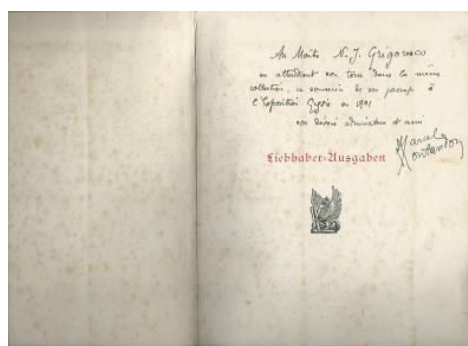 Au Maître N. J. Grigoresco
en attendant son tome dans la même
collection, ce souvenir de son passage à
l'Exposition Gysis en 1901
son dévoué admirateur et ami
Marcel
Montandon
Liebhaber-Ausgaben